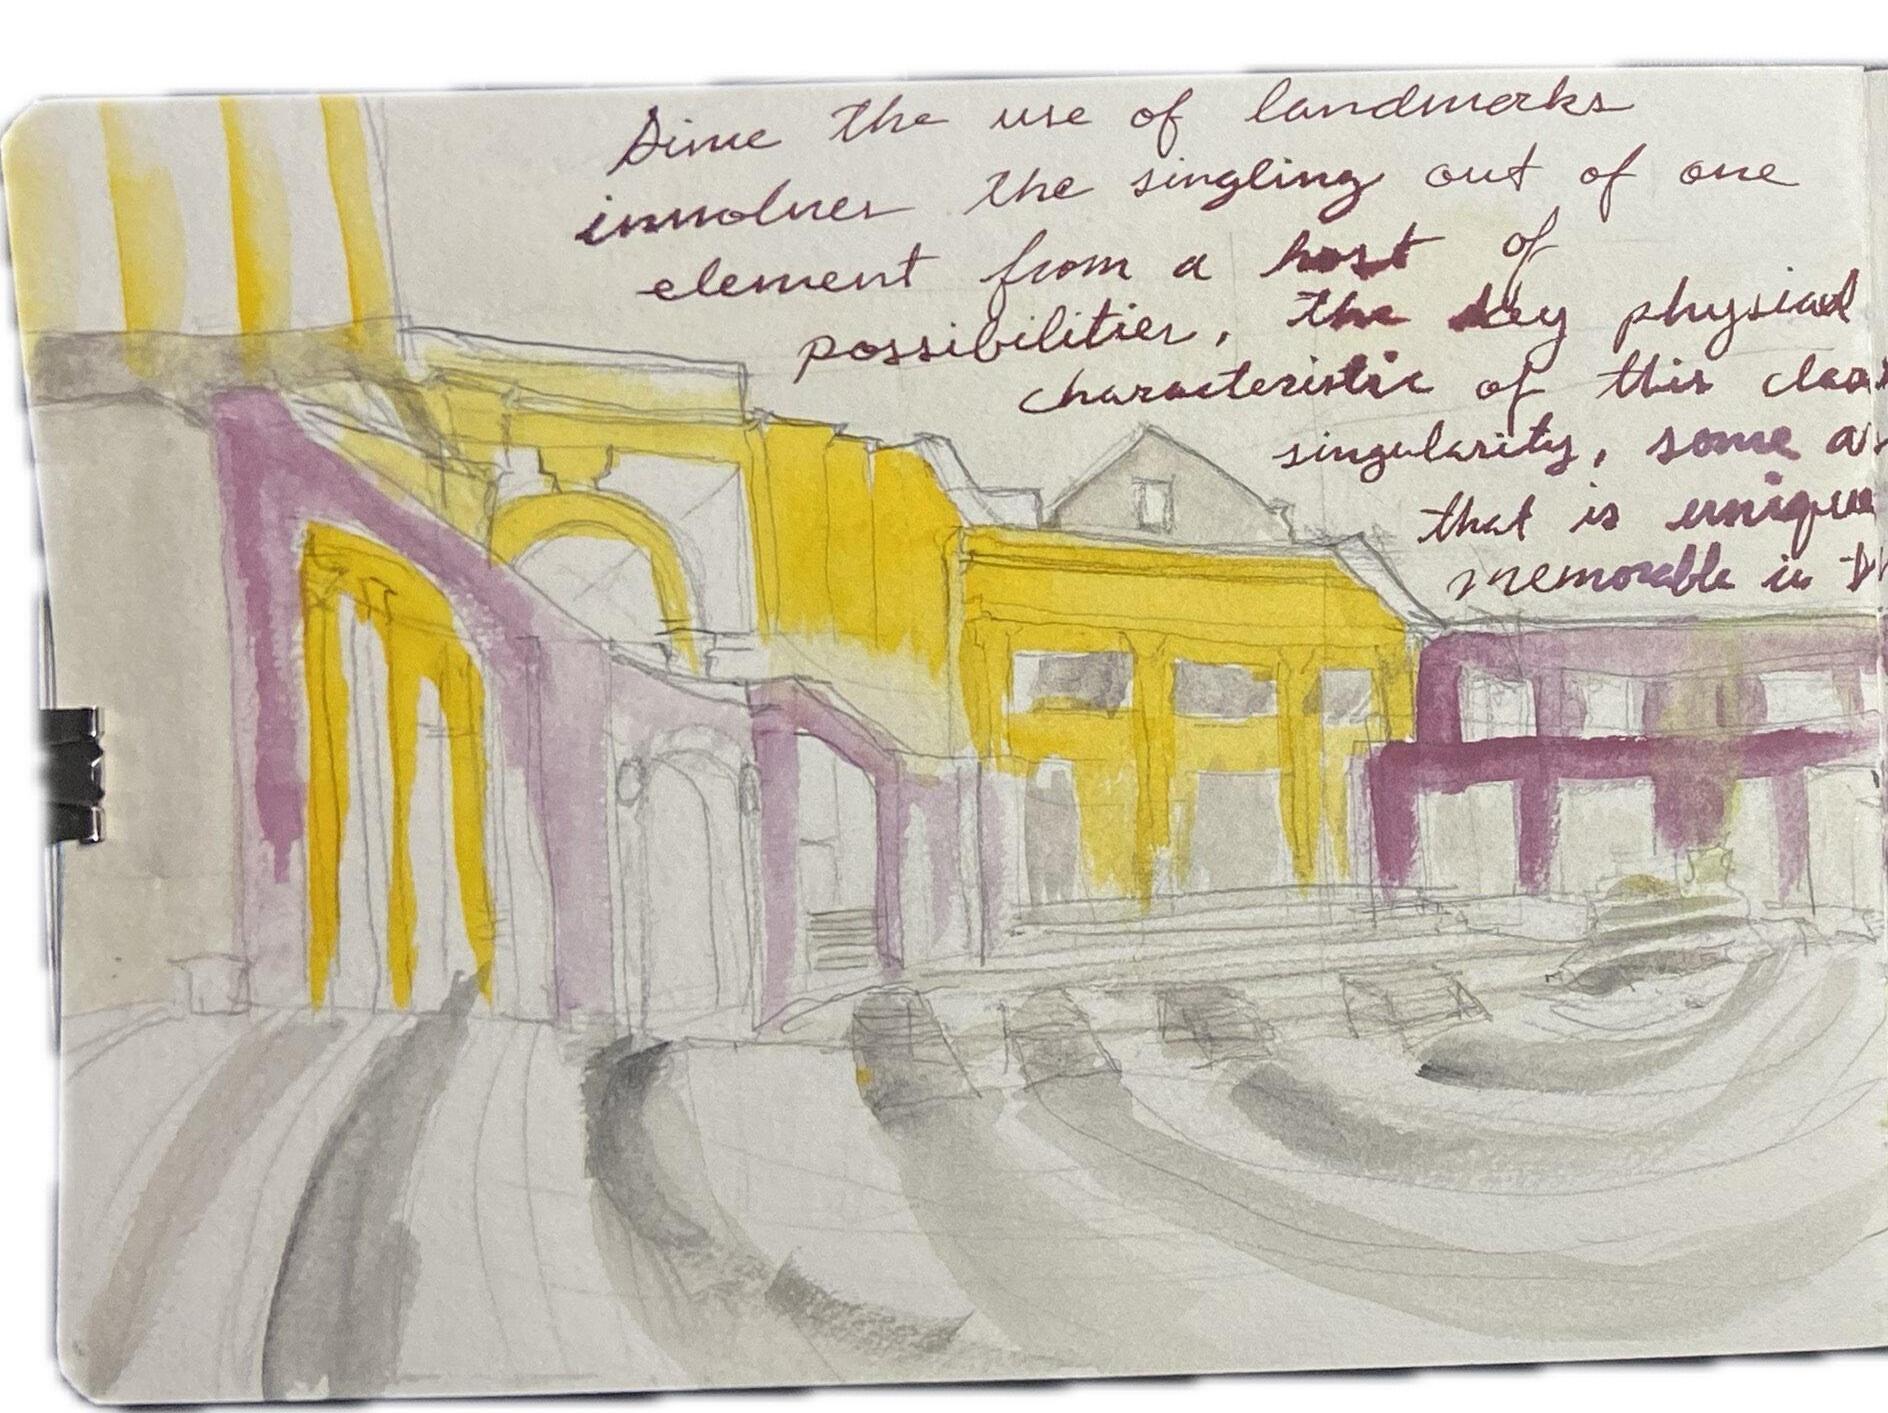 Since the use of landmarks
involves the singling out of one
element from a host of
possibilities, the key physical
characteristic of this
singularity, some
that is unique
memorable in